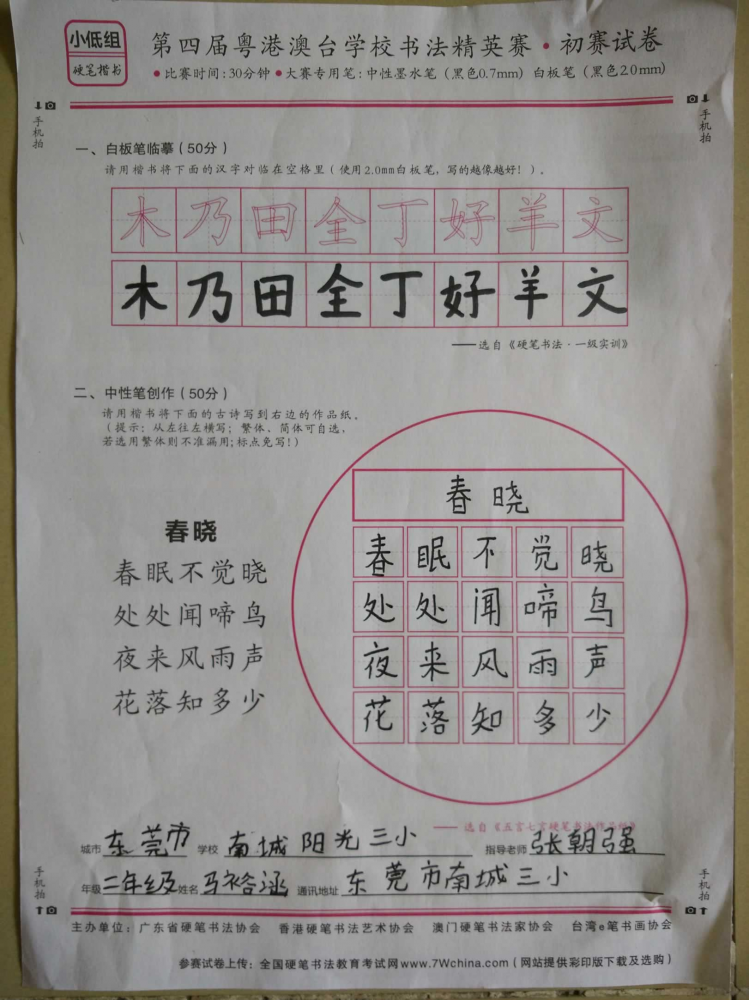 小低组
硬笔楷书
第四届粤港澳台学校书法精英赛·初赛试卷
●比赛时间:30分钟●大赛专用笔:中性墨水笔(黑色0.7mm) 白板笔(黑色2.0mm)
手机拍
手机拍
一、白板笔临摹(50分)
请用楷书将下面的汉字对临在空格里(使用2.0mm白板笔,写的越像越好!)。
木乃田全丁好羊文
木乃田全丁好羊文
——选自《硬笔书法·一级实训》
二、中性笔创作(50分)
请用楷书将下面的古诗写到右边的作品纸。
(提示:从左往左横写;繁体、简体可自选,
若选用繁体则不准漏用;标点免写!)
春晓
春眠不觉晓
处处闻啼鸟
夜来风雨声
花落知多少
春晓
春眠不觉晓
处处闻啼鸟
夜来风雨声
花落知多少
——选自《五言七言硬笔书法作品纸》
城市 东莞市 学校 南城阳光三小 指导老师 张朝强
年级 二年级 姓名 马裕涵 通讯地址 东莞市南城三小
手机拍
手机拍
主办单位:广东省硬笔书法协会 香港硬笔书法艺术协会 澳门硬笔书法家协会 台湾e笔书画协会
参赛试卷上传:全国硬笔书法教育考试网www.7Wchina.com(网站提供彩印版下载及选购)